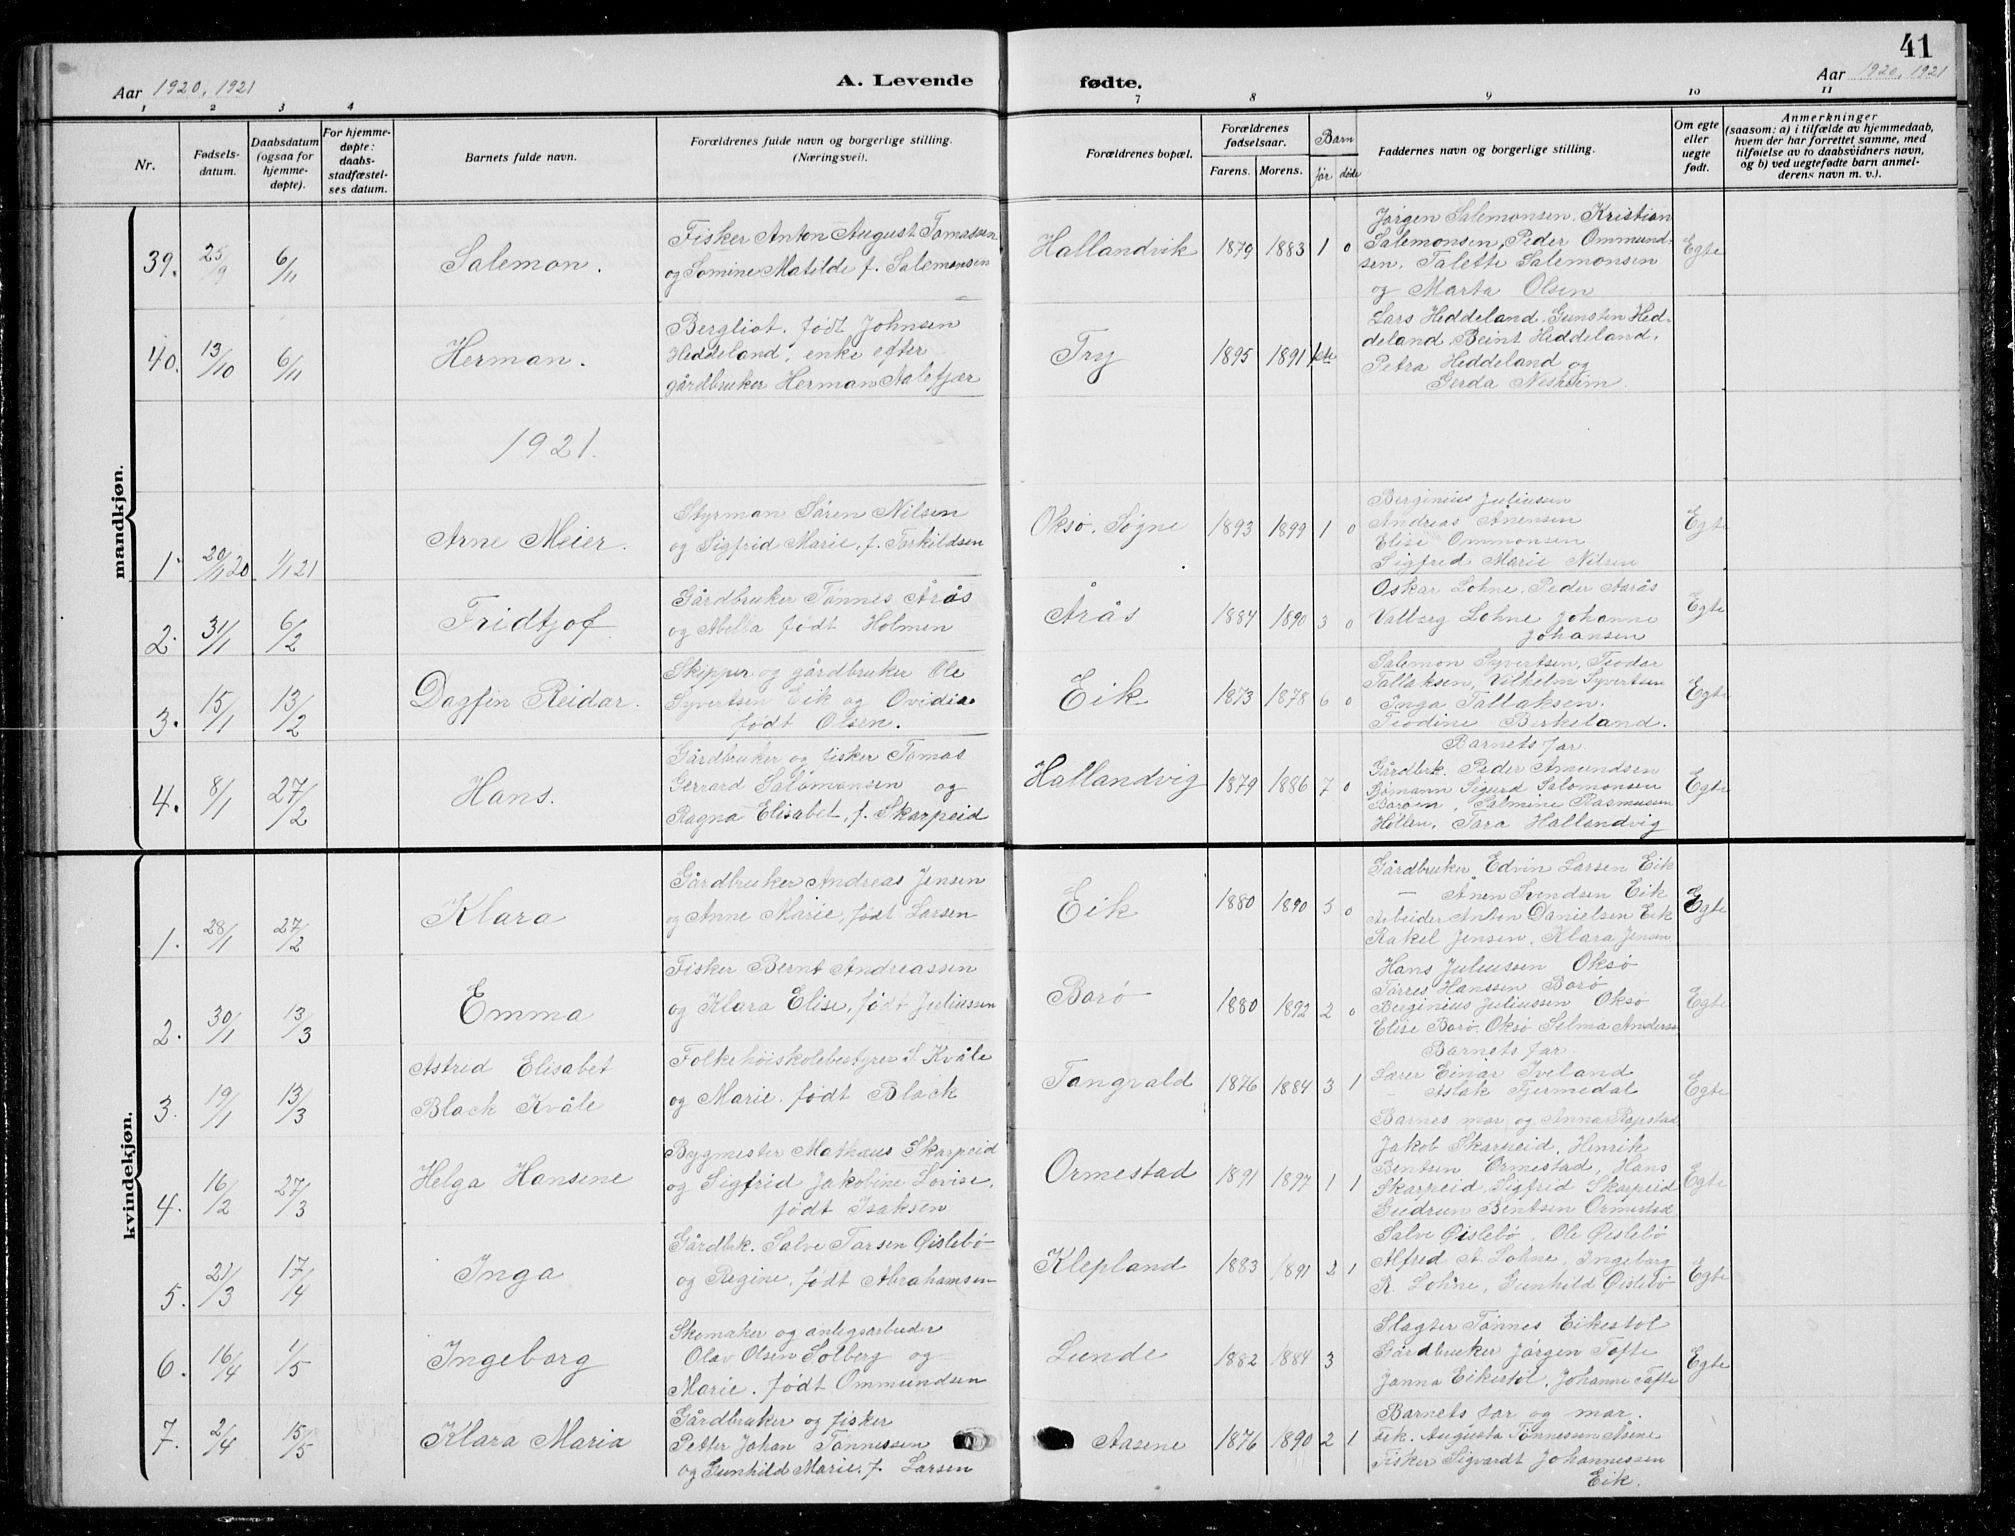 41
Aar 1920, 1921
A. Levende fødte.
Aar 1920, 1921
1 2 3 4 7 8 9 10 11
Nr.
Fødsels-
datum.
Daabsdatum
(ogsaa for
hjemme-
døpte).
For hjemme-
døpte:
daabs-
stadfæstel-
ses datum.
Barnets fulde navn.
Forældrenes fulde navn og borgerlige stilling.
(Næringsvei).
Forældrenes bopæl.
Forældrenes
fødselsaar.
Farens. Morens.
Barn
før døde
Faddernes navn og borgerlige stilling.
Om egte
eller
uegte
født.
Anmerkninger
(saasom: a) i tilfælde av hjemmedaab,
hvem der har forrettet samme, med
tilføielse av to daabsvidners navn,
og b) ved uegtefødte barn anmel-
derens navn m. v.).
mandkjøn.
39. 25/9 6/11 Salemon.
Fisker Anton August Tomassen
og Somine Matilde f. Salemonsen
Hallandvik 1879 1883 1 0
Jørgen Salemonsen, Kristian
Salemonsen, Peder Ommund-
sen, Talette Salemonsen
og Marta Olsen
Egte
40. 13/10 6/11 Herman.
Bergliot, født Johnsen
Heddeland, enke efter
gårdbruker Herman Aalefjær
Try 1895 1891
Lars Heddeland, Gunsten Hed-
deland, Beint Heddeland,
Petra Heddeland og
Gerda Nesheim.
1921.
1. 20/11 20 1/1 21 Arne Meier.
Styrman Sören Nilsen
og Sigfrid Marie, f. Torkildsen
Oksø. Søgne 1893 1899 1 0
Berginius Juliussen
Andreas Anensen
Elise Ommonsen
Sigfred Marie Nilsen
Egte
2. 31/1 6/2 Fridtjof
Gårdbruker Tönnes Årås
og Abella født Holmen
Årås 1884 1890 3 0
Oskar Lohne, Peder Aarås
Valborg Lohne Johanne
Johansen
Egte
3. 15/1 13/2 Dagfin Reidar.
Skipper og gårdbruker Ole
Syvertsen Eik og Ovidia
født Olsen.
Eik 1873 1878 6 0
Salemon Syvertsen, Teodor
Tallaksen, Vilhelm Syvertsen
Inga Tallaksen.
Teodine Birkeland.
Egte
4. 8/1 27/2 Hans.
Gårdbruker og fisker Tomas
Gerrard Salomonsen og
Ragna Elisabet, f. Skarpeid
Hallandvig 1879 1886 7 0
Barnets far.
Gårdbrk. Peder Amundsen
Sjømann Sigurd Salomonsen
Borøen, Salmine Rasmussen
Høllen, Tora Hallandvig
Egte
kvindekjøn.
1. 28/1 27/2 Klara
Gårdbruker Andreas Jensen
og Anne Marie, født Larsen
Eik 1880 1890 5 0
Gårdbruker Edvin Larsen Eik
— Anen Svendsen Eik
Arbeider Anton Danielsen Eik
Rakel Jensen, Klara Jensen
Egte
2. 30/1 13/3 Emma
Fisker Bernt Andreassen
og Klara Elise, født Juliussen
Borö 1880 1892 2 0
Hans Juliussen Oksø
Torres Hanssen Borö
Berginius Juliussen Oksø
Elise Borö, Oksø Selma Anderss
Egte
3. 19/1 13/3
Astrid Elisabet
Black Kvåle
Folkehöiskolebestyrer S. Kvåle
og Marie, født Black
Tangvald 1876 1884 3 1
Barnets far.
Lærer Einar Iveland
— Aslak Fjermedal
Barnes mor og Anna Repstad
Egte
4. 16/2 27/3 Helga Hansene
Bygmester Mathæus Skarpeid
og Sigfrid Jakobine Lovise,
født Isaksen
Ormestad 1891 1897 1 1
Jakob Skarpeid, Henrik
Bentsen Ormestad, Hans
Skarpeid, Sigfrid Skarpeid
Gudrun Bentsen Ormestad
Egte
5. 21/3 17/4 Inga
Gårdbrk. Salve Tarsen Øislebö
og Regine, født Abrahamsen
Klepland 1883 1891 2 1
Salve Øislebö, Ole Øislebö
Alfred A. Lohne, Ingeborg
R. Lohne, Gunhild Øislebö
Egte
6. 16/4 1/5 Ingeborg
Skomaker og anlegsarbeider
Olav Olsen Solberg og
Marie, født Ommundsen
Lunde 1882 1884 3
Slagter Tönnes Eikestöl
Gårdbruker Jörgen Tofte
Janna Eikestöl, Johanne Tofte
Egte
7. 2/4 15/5 Klara Maria
Gårdbruker og fisker
Petter Johan Tönnessen
og Gunhild Marie, f. Larsen
Aasene 1876 1890 2 1
Barnets far og mor.
Frk. Augusta Tönnessen Åsene
Fisker Sigvardt Johannessen
Eik.